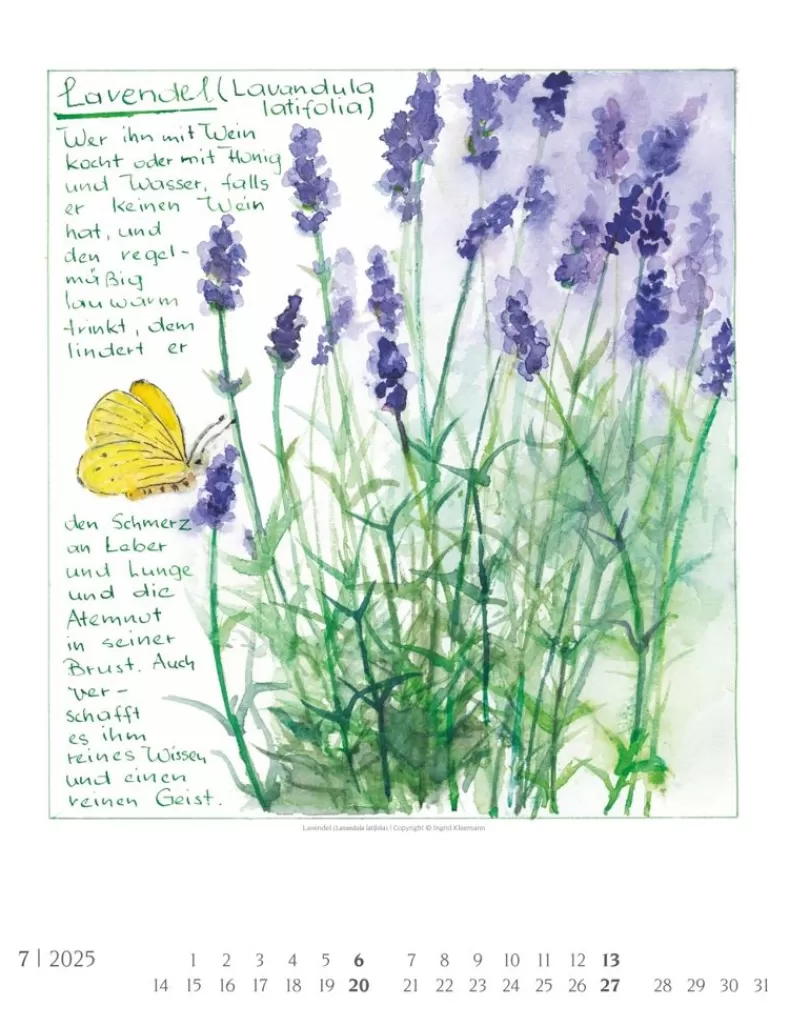 Lavendel (Lavandula
latifolia)
Wer ihn mit Wein
kocht oder mit Honig
und Wasser, falls
er keinen Wein
hat, und
den regel-
mäßig
lauwarm
trinkt, dem
lindert er
den Schmerz
an Leber
und Lunge
und die
Atemnot
in seiner
Brust. Auch
ver-
schafft
es ihm
reines Wissen
und einen
reinen Geist.
Lavendel (Lavandula latifolia) | Copyright © Ingrid Kleemann
7 | 2025
1 2 3 4 5 6 7 8 9 10 11 12 13
14 15 16 17 18 19 20 21 22 23 24 25 26 27 28 29 30 31